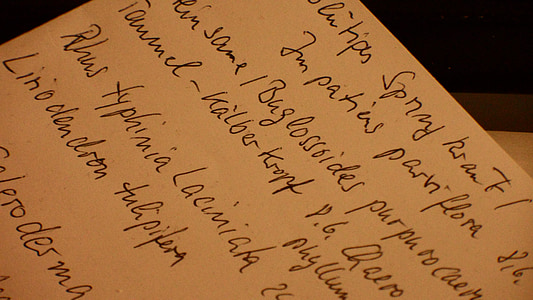 Springkraut /
Impatiens parviflora 8/6.
einsame / Buglossoides purpurocaer
Taumel-Kälberkropf 8.6. Chaero
phyllum
Rhus typhinia Laciniata 2
Liriodendron tulipifera
leroderma